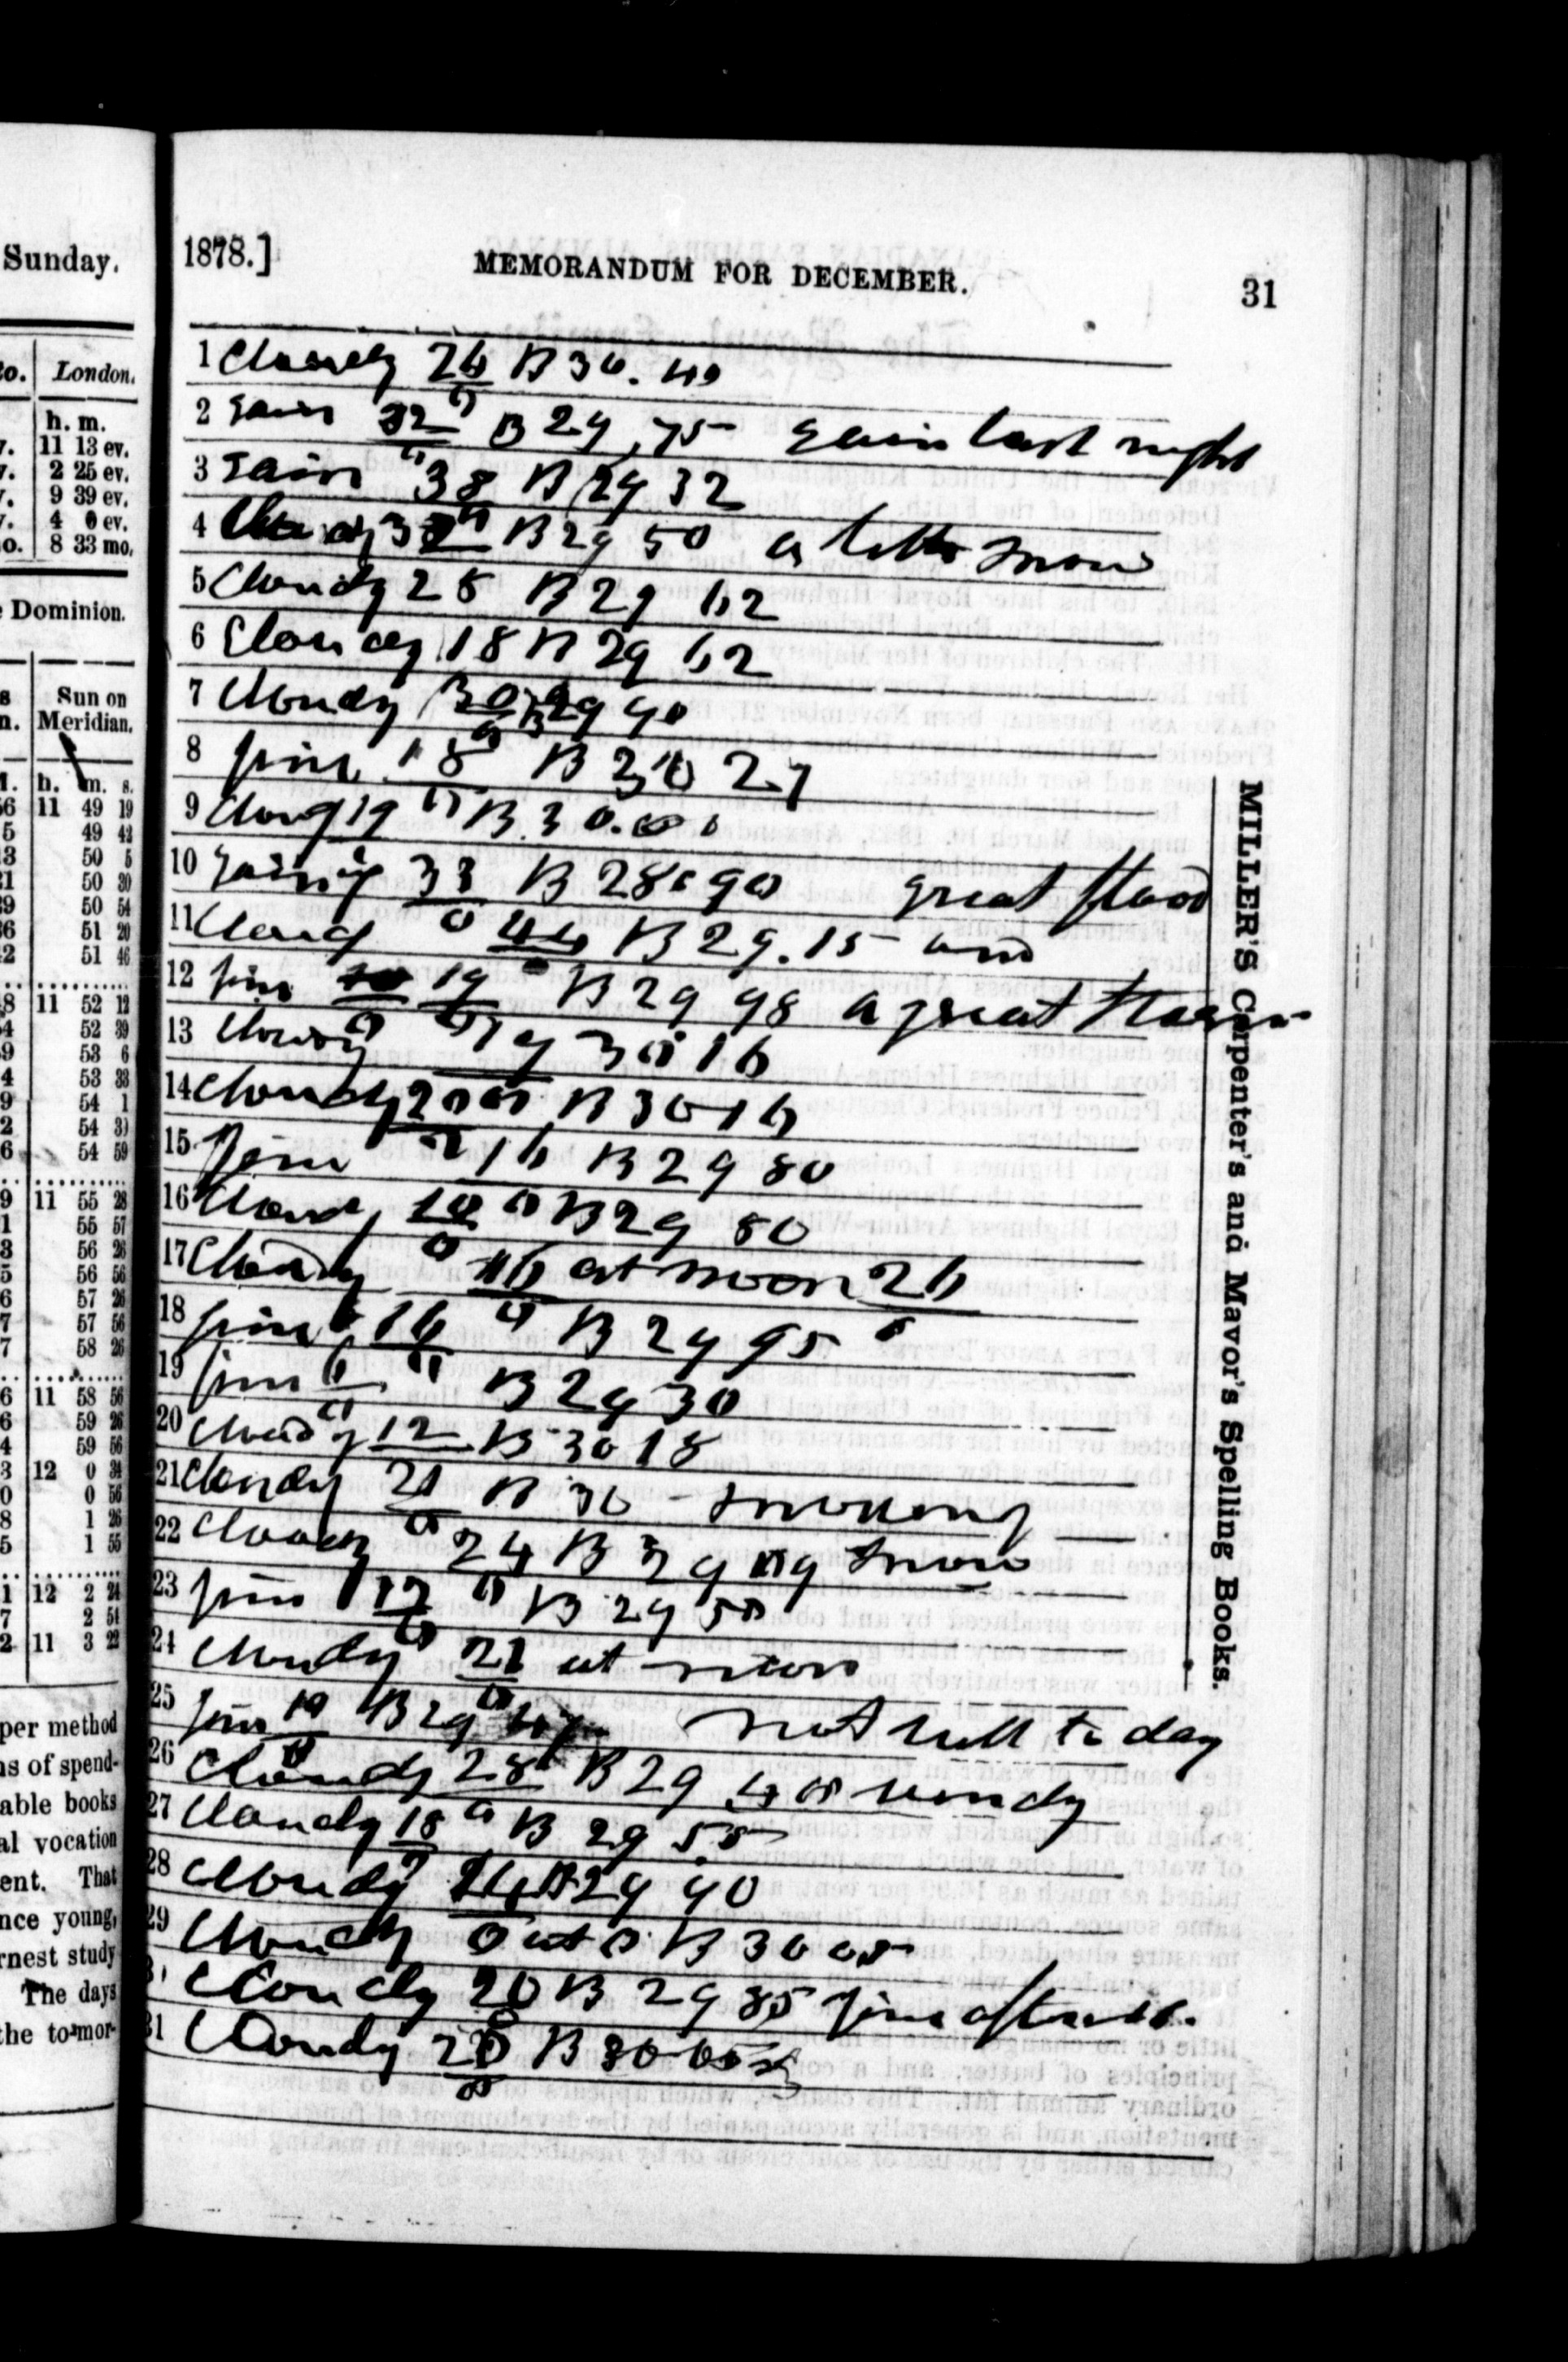 Sunday.
o. London.
h. m.
11 13 ev.
2 25 ev.
9 39 ev.
4 0 ev.
8 33 mo.
Dominion.
Sun on
Meridian.
h. m. s.
11 49 19
49 42
50 5
50 30
50 54
51 20
51 46
11 52 12
52 39
53 6
53 33
54 1
54 30
54 59
11 55 28
55 57
56 26
56 56
57 26
57 56
58 26
11 58 56
59 26
59 56
12 0 34
0 56
1 26
1 55
12 2 24
2 54
11 3 22
per method
ns of spend-
able books
al vocation
ent. That
nce young,
rnest study
The days
the to-mor-
1878.] MEMORANDUM FOR DECEMBER. 31
1 Cloudy 26 B 30.40
2 rain 32 B 29,75 rain last night
3 rain 38 B 29 32
4 Cloudy B 29 50 a little snow
5 Cloudy 28 B 29 62
6 Cloudy 18 B 29 62
7 Cloudy 30 B 29 90
8 fine 18 B 30 27
9 Cloudy 19 B 30.00
10 raining 33 B 28 90 great flood
11 Cloudy 44 B 29.15 and
12 fine 19 B 29 98 a great storm
13 Cloudy 19 30 16
14 Cloudy 20 B 30 16
15 fine 16 B 29 80
16 Cloudy 10 B 29 80
17 Cloudy 16 at noon 26
18 fine 16 B 29 95
19 fine 6 B 29 30
20 Cloudy 12 B 30 18
21 Cloudy 21 B 30 snowing
22 Cloudy 24 B 29 snow
23 fine 12 B 29 50
24 Cloudy 21 at noon
25 fine B 29 not well to day
26 Cloudy 28 B 29 40 windy
27 Cloudy 18 B 29 55
28 Cloudy 24 B 29 90
29 Cloudy 0 at 0 B 30 05
Cloudy 20 B 29 85 fine
31 Cloudy B 30
MILLER'S Carpenter's and Mavor's Spelling Books.